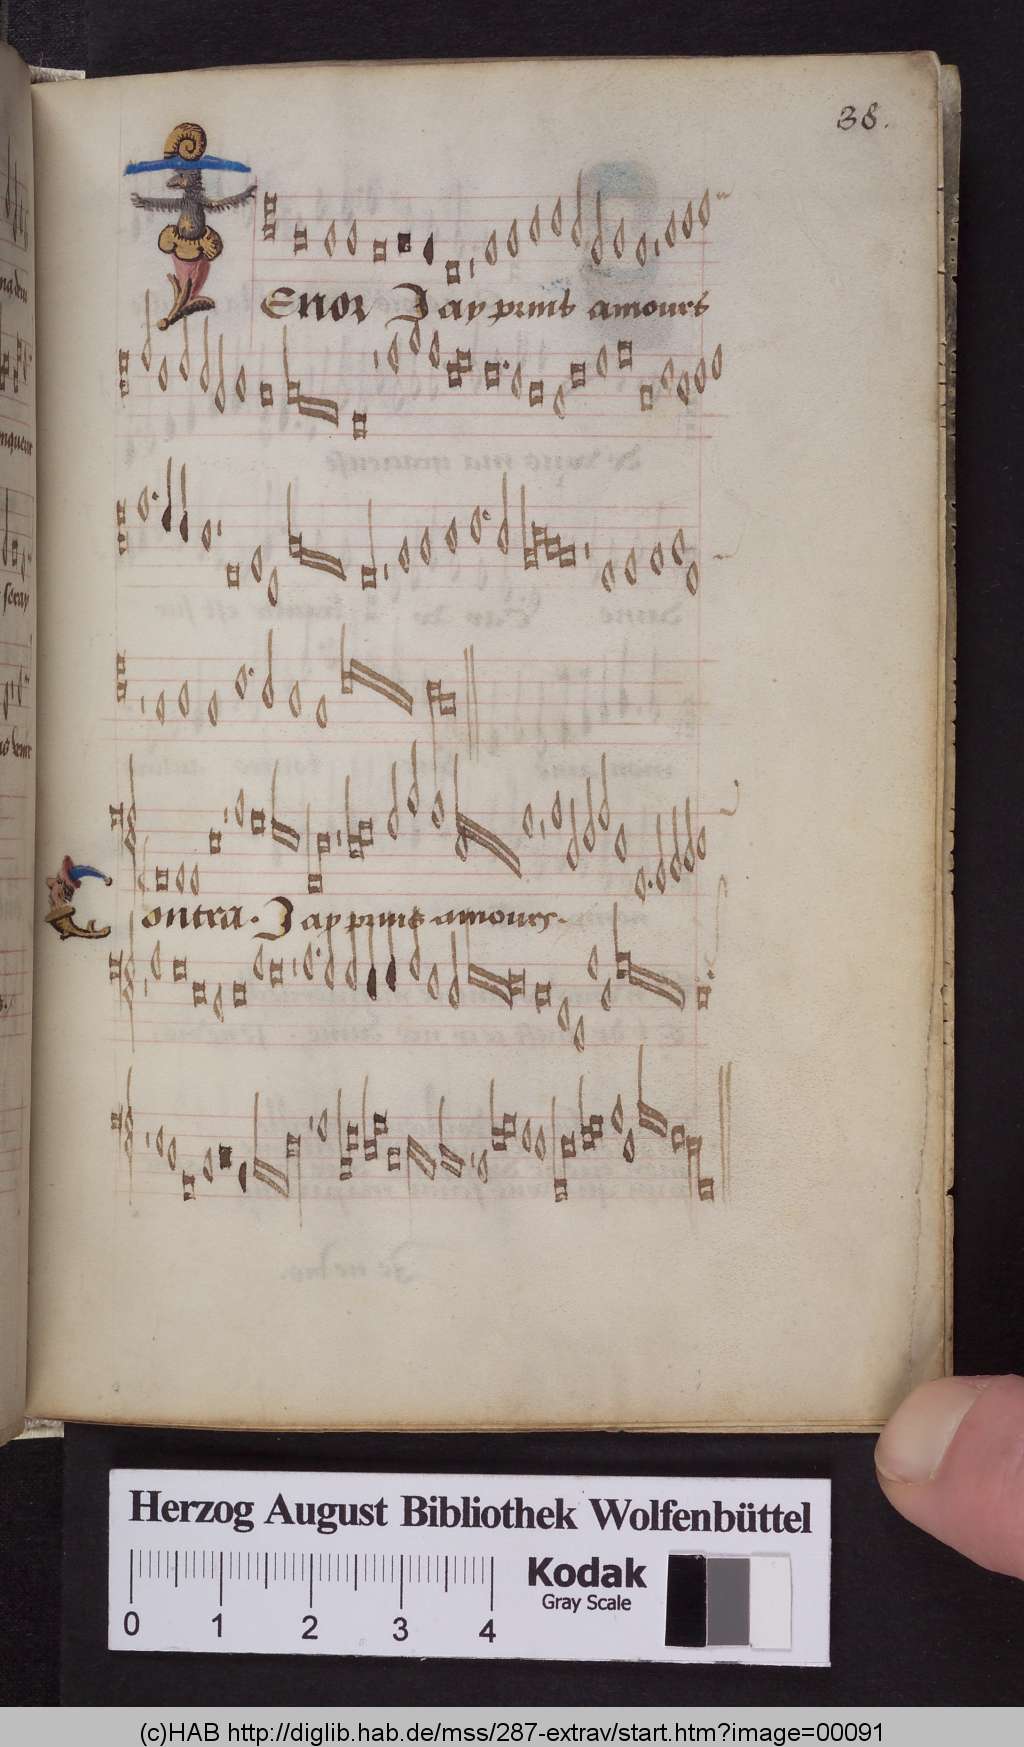 38.
Tenor J ay prins amours
Contra. J ay prins amours.
Herzog August Bibliothek Wolfenbüttel
0 1 2 3 4
Kodak
Gray Scale
(c)HAB http://diglib.hab.de/mss/287-extrav/start.htm?image=00091